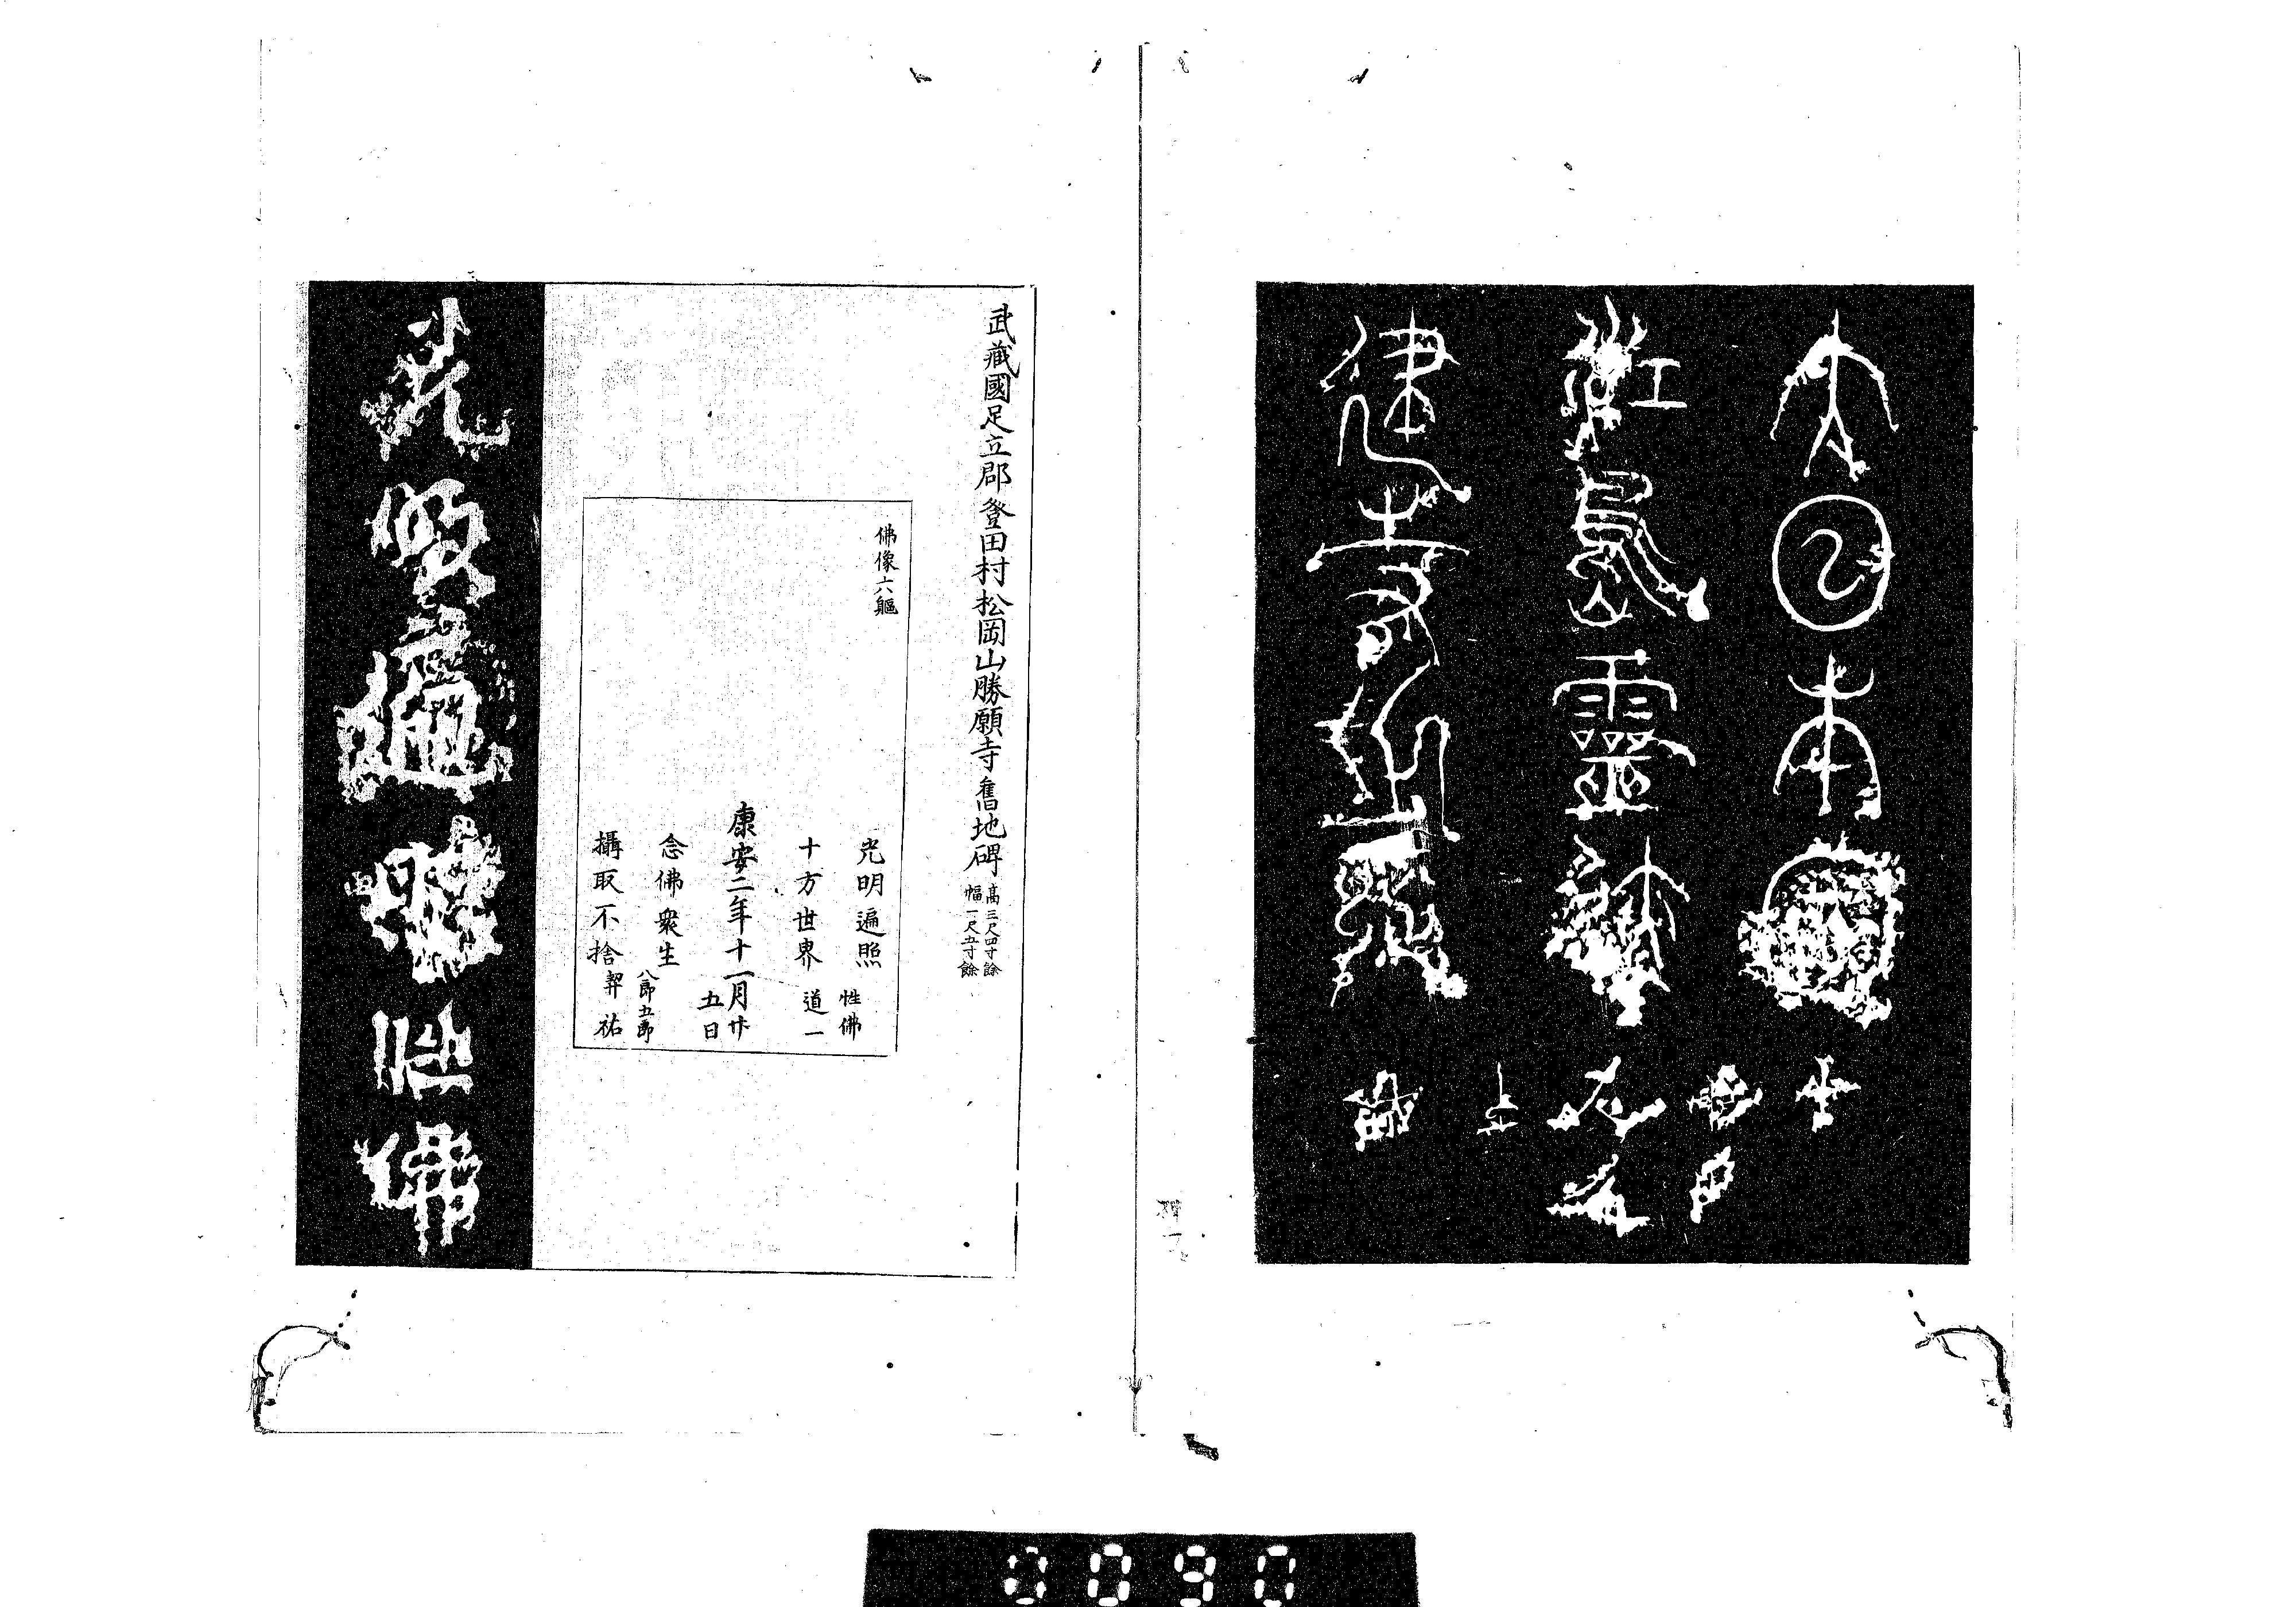 大日本國
江島靈
建寺之
武藏國足立郡登田村松岡山勝願寺舊地碑 高三尺四寸餘 幅一尺五寸餘
佛像六軀
光明遍照 性佛
十方世界 道一
康安二年十一月廿五日
念佛衆生 八郎五郎
攝取不捨 契祐
光明遍照 性佛
0090